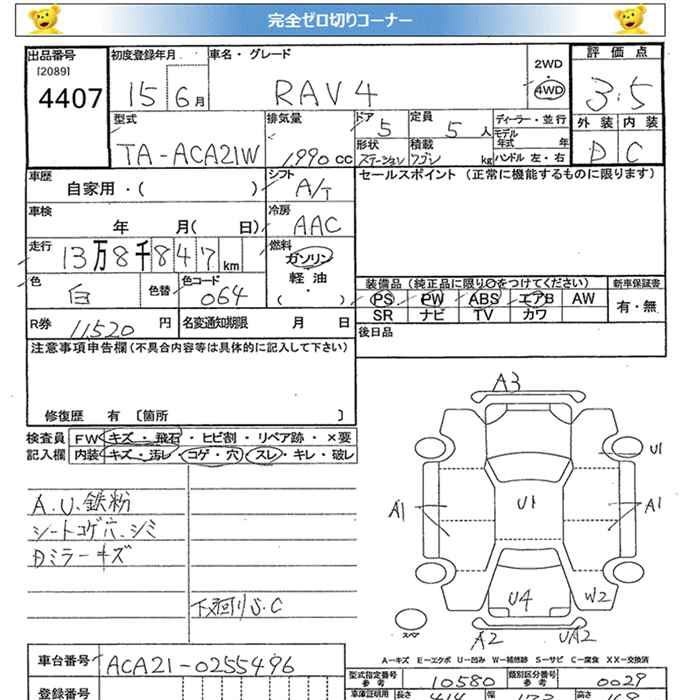 完全ゼロ切りコーナー
出品番号 [2089] 4407
初度登録年月 15 6月
車名・グレード RAV4
2WD 4WD
評価点 3.5
外装 D 内装 C
型式 TA-ACA21W
排気量 1990 cc
ドア 5 定員 5 人
形状 ステーションワゴン 積載 kg
ディーラー・並行
モデル年式 年
ハンドル 左・右
車歴 自家用・( )
シフト A/T
セールスポイント (正常に機能するものに限ります)
車検 年 月( 日)
冷房 AAC
走行 13万8千847km
燃料 ガソリン 軽油 ( ・ )
色 白 色替 色コード 064
装備品 (純正品に限り○をつけてください) 新車保証書
PS PW ABS エアB AW 有・無
SR ナビ TV カワ
R券 11,520 円 名変通知期限 月 日
後日品
注意事項申告欄(不具合内容等は具体的に記入して下さい)
修復歴 有 [箇所 ]
検査員 FW キズ・飛石・ヒビ割・リペア跡・×要
記入欄 内装 キズ・汚レ・コゲ・穴・スレ・キレ・破レ
A.U.鉄粉
シートコゲ穴.シミ
Dミラーキズ
下廻りS.C
A3
U1
A1 U1 A1
U4 W2
スペア
A2 UA2
A-キズ E-エクボ U-凹み W-補修跡 S-サビ C-腐食 XX-交換済
車台番号 ACA21-0255496
型式指定番号 参考 10580 類別区分番号 参考 0029
登録番号
車庫証明用 参考 長さ 幅 高さ